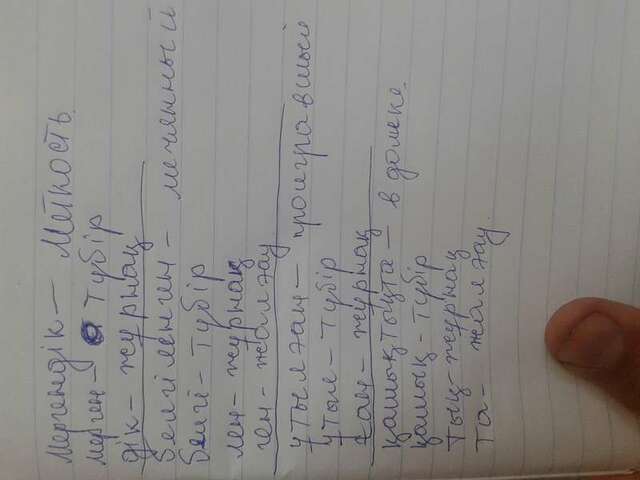 Мергендік – Меткость.
мерген – түбір
дік – журнақ
белгіленген – меченный
белгі – түбір
лен – журнақ
ген – жалғау
ұтылған – проигравший
ұтыл – түбір
ған – журнақ
қашықтықта – в далеке.
қашық – түбір
тық – журнақ
та – жалғау.